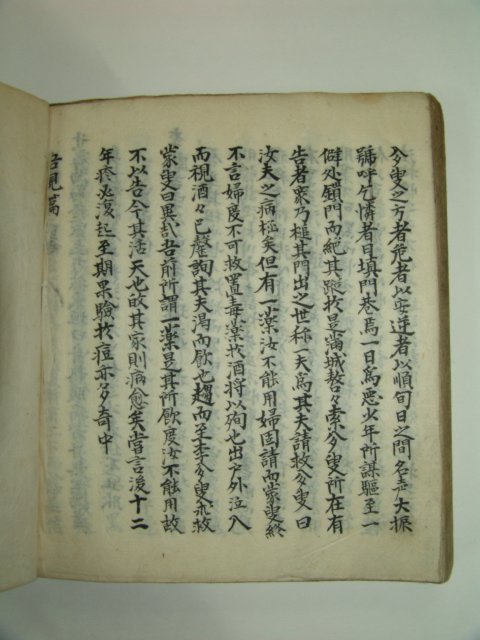 蒙叟之方者危者以安逆者以順旬日之間名声大振
號呼乞憐者日填門巷焉一日爲惡少年所謀驅至一
僻處鐍門而絶其蹤於是滿城嗸々索蒙叟所在有
告者衆乃椎其門出之世称一夫爲其夫請救蒙叟曰
汝夫之病極矣但有一藥汝不能用婦固請而蒙叟終
不言婦度不可救置毒藥於酒將以殉也出戶外泣入
而視酒々已罄詢其夫渴而飮也趨而至李蒙叟求救
蒙叟曰異哉吾前所謂一藥是其所飮度汝不能用故
不以告今其活天也敀其家則病愈矣嘗言後十二
年疹必復起至期果驗於痘亦多奇中
篇